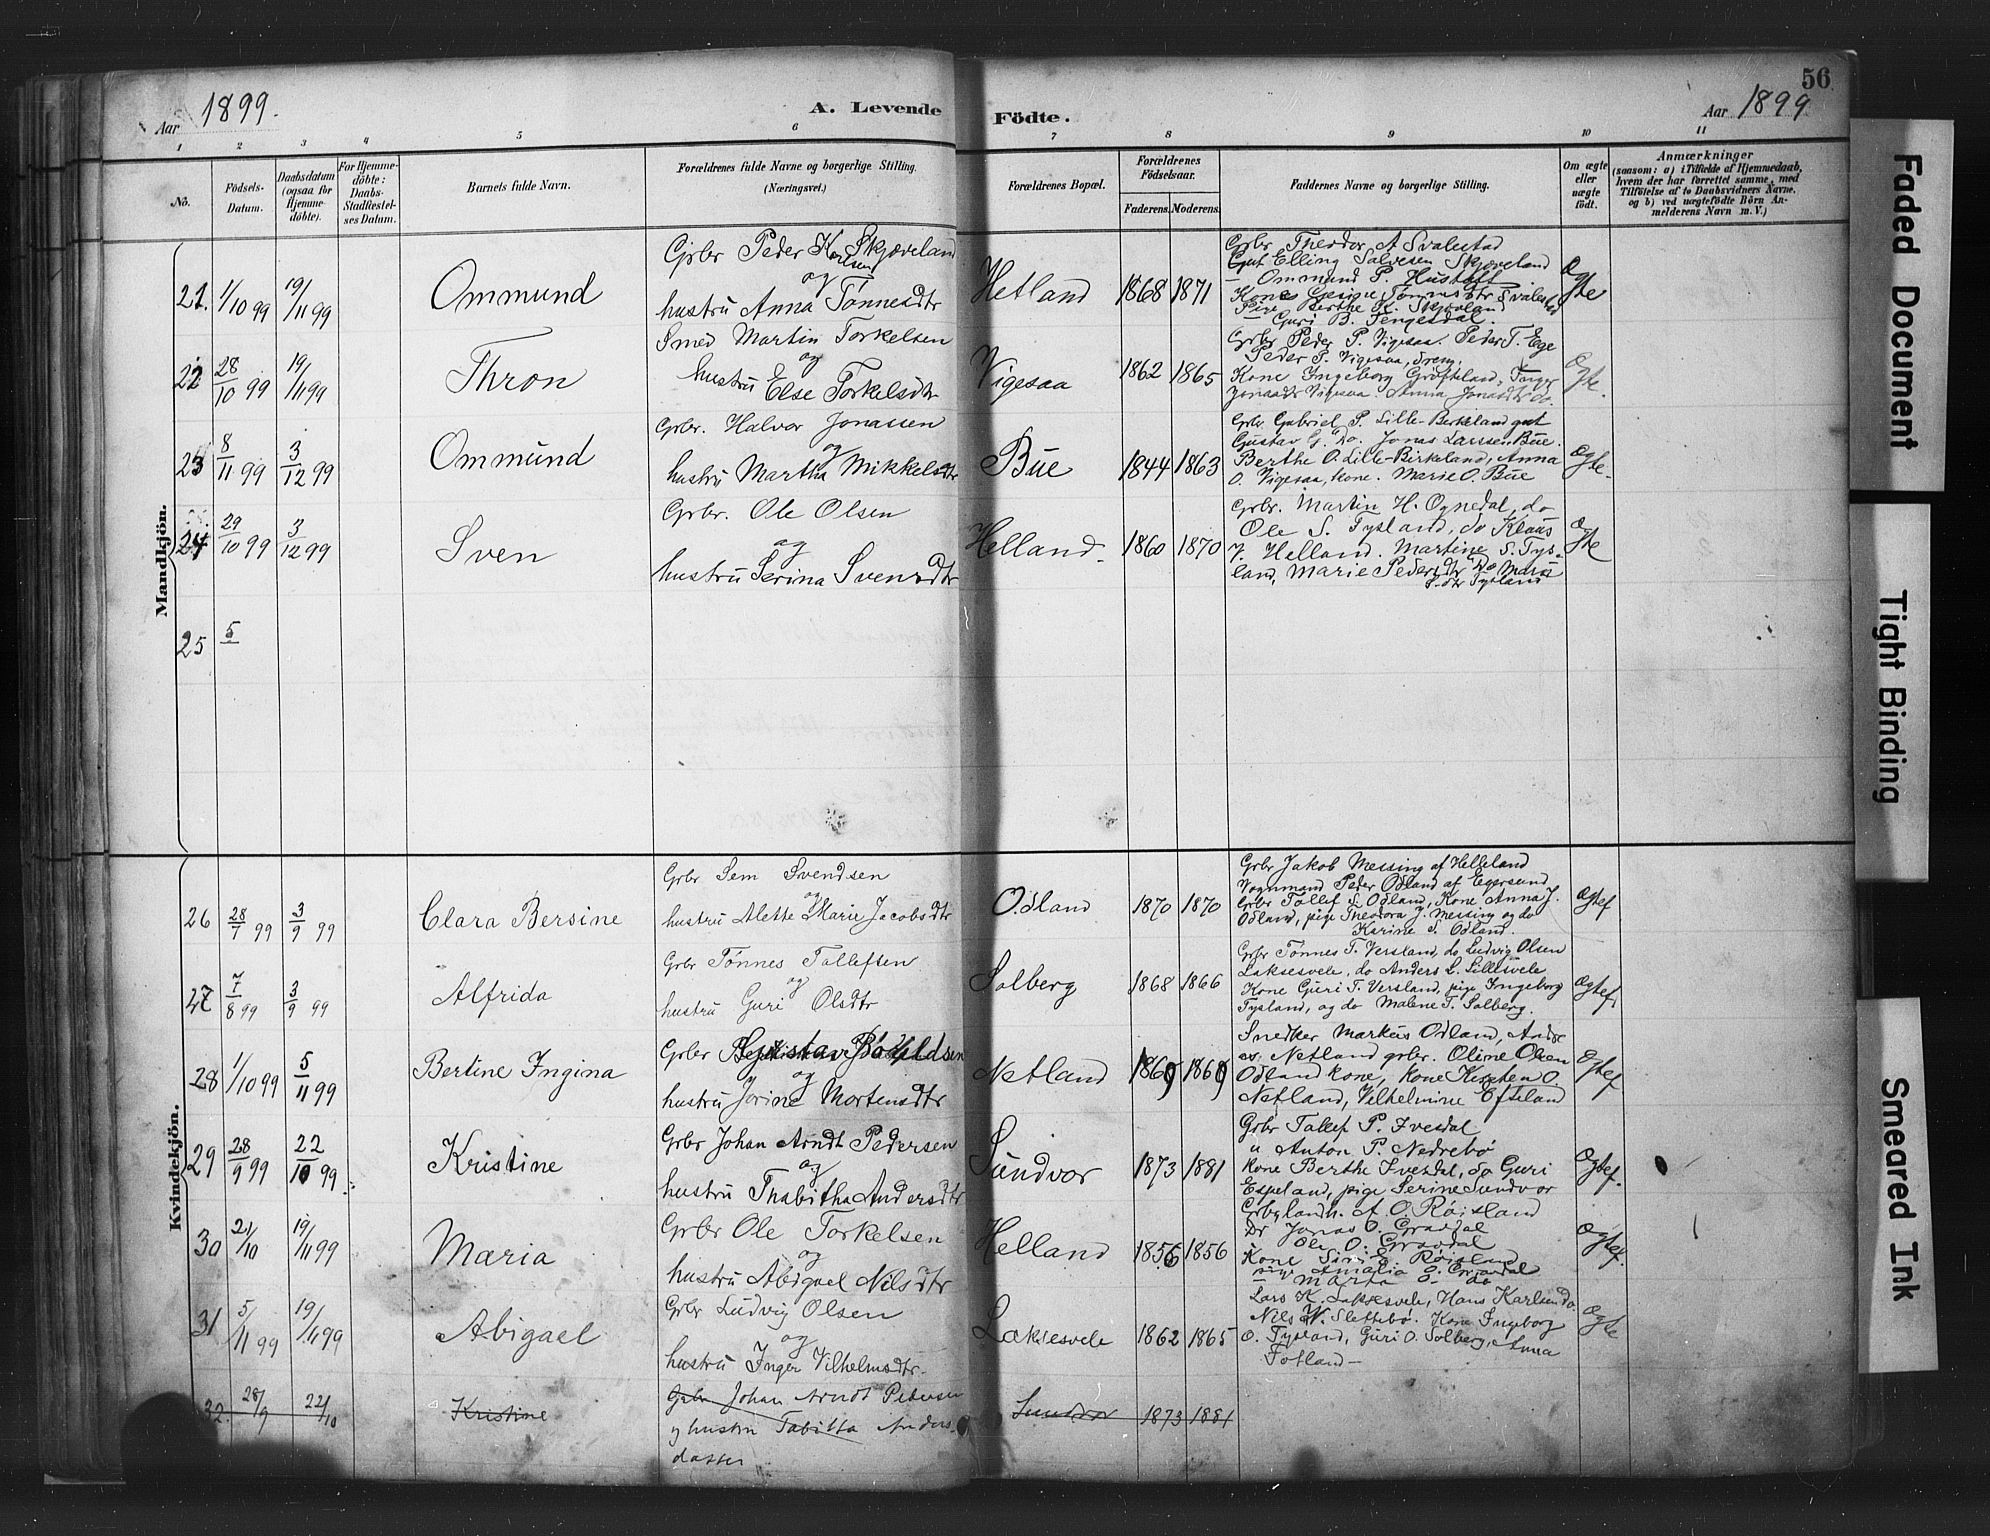 56
Aar 1899.
A. Levende Födte.
Aar 1899
1 2 3 4 5 6 7 8 9 10 11
No.
Födsels-Datum.
Daabsdatum (ogsaa for Hjemmedöbte).
For Hjemmedöbte: Daabs-Stadfæstelses Datum.
Barnets fulde Navn.
Forældrenes fulde Navne og borgerlige Stilling. (Næringsvei.)
Forældrenes Bopæl.
Forældrenes Födselsaar.
Faderens. Moderens.
Faddernes Navne og borgerlige Stilling.
Om ægte eller uægte födt.
Anmærkninger
(saasom: a) i Tilfælde af Hjemmedaab, hvem der har forrettet samme, med Tilföielse af to Daabsvidners Navne, og b) ved uægtefödte Börn Anmelderens Navn m. V.)
Mandkjön.
21. 1/10 99 19/11 99 Ommund
Grbr Peder Karlsen Skjæveland
og
hustru Anna Tønnesdtr
Hetland 1868 1871
Grbr Theodor A Svalestad
Gut Elling Salvesen Skjæveland
Ommund P. Hustoft
Kone Gesine Tønnesdtr Svalestad
Pige Berthe K. Skjæveland
Guri B. Tengesdal.
Ægte
22 28/10 99 19/11 99 Thron
Smed Martin Torkelsen
og
hustru Else Torkelsdtr
Vigesaa 1862 1865
Grbr Peder P. Vigesaa. Peder T. Ege
Peder P. Vigesaa, dreng,
Kone Ingeborg Grøfteland, Inger
Jonasdtr Vigesaa. Anna Jonasdtr do.
Ægte.
23 8/11 99 3/12 99 Ommund
Grbr. Halvor Jonassen
og
hustru Martha Mikkelsdtr
Bue 1844 1863
Grbr Gabriel P. Lille-Birkeland gut
Gustav G. Do. Jonas Larssen Bue.
Berthe O. Lille-Birkeland, Anna
O. Vigesaa, kone. Marie O. Bue
Ægte.
24 29/10 99 3/12 99 Sven
Grbr. Ole Olsen
og
hustru Serina Svensdtr
Helland 1860 1870
Grbr. Martin H. Ognedal, do
Ole S. Tysland, do Klaus
J. Helland. Martine S. Tys-
land, Marie Pedersdtr Do Marie
P.dtr Tysland
Ægte
25 5
Kvindekjön.
26 28/7 99 3/9 99 Clara Bersine
Grbr Sem Svendsen
og
hustru Alette Marie Jacobsdtr
Odland 1870 1870
Grbr Jakob Messing af Helleland
Vognmand Peder Odland af Egersund
Grbr Tollef S. Odland, Kone Anna J.
Odland, pige Theodora J. Messing og do
Karine S. Odland.
Ægtef
27 7/8 99 3/9 99 Alfrida
Grbr Tønnes Tollefsen
og
hustru Guri Olsdtr
Solberg 1868 1866
Grbr Tønnes T. Versland, do Ludvig Olsen
Laksesvele, do Anders L. Lillesvele
Kone Guri T. Versland, pige Ingeborg
Tysland, og do Malene T. Solberg.
Ægtef.
28 1/10 99 5/11 99 Bertine Ingina
Grbr Gustav
og
hustru Jorine Mortensdtr
Netland 1869 1869
Snedker Markus Odland, Andr
Netland grbr. Oline Olsen
Odland kone, kone Kirsten O.
Netland, Vilhelmine Efteland
Ægtef
29 28/9 99 22/10 99 Kristine
Grbr Johan Arndt Pedersen
og
hustru Thabitha Andersdtr
Sundvor 1873 1881
Grbr Tollef P. Ivesdal
" Anton P. Nedrebø
Kone Berthe Ivesdal, do Guri
Espeland, pige Serine Sundvor
Ægtef.
30 21/10 19/11 99 Maria
Grbr Ole Torkelsen
og
hustru Abigael Nilsdtr
Helland 1856 1856
A. O. Røisland
Dr Jonas O. Gravdal
Ole O. Gravdal
Kone Siri Røisland
pige Amalia O. Gravdal
Marta O. do
Ægtef.
31 5/11 99 19/11 99 Abigael
Grbr Ludvig Olsen
og
hustru Inger Vilhelmsdtr.
Laksesvele 1862 1865
Lars K. Laksesvele, Hans Karlsen do.
Nils W. Slettebø. Kone Ingeborg
O. Tysland, Guri O. Solberg, Anna
Fotland
Ægte
32. 28/9 22/10 Kristine
Grbr Johan Arndt Pedersen
og hustru Tabitta Anders-
datter
Sundvor 1873 1881
Faded Document
Tight Binding
Smeared Ink